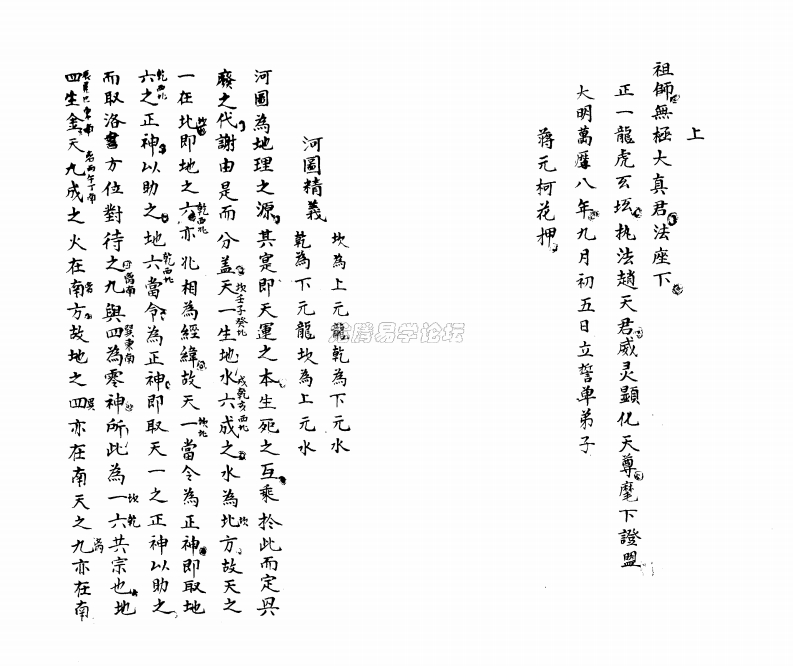 上
祖師無極大真君法座下
正一龍虎玄坛执法趙天君威灵顯化天尊麾下證盟
大明萬歷八年九月初五日立誓单弟子
蒋元柯花押
河圖精義
坎為上元龍乾為下元水
乾為下元龍坎為上元水
河圖為地理之源其寔即天運之本生死之互乘於此而定興
廢之代謝由是而分盖天一生地水六成之水為北方故天之
一在北即地之六亦北相為經緯故天一當令為正神即取地
六之正神以助之地六當令為正神即取天一之正神以助之
而取洛書方位對待之九與四為零神所此為一六共宗也地
四生金天九成之火在南方故地之四亦在南天之九亦在南
坎壬子癸北
戌乾亥西北
乾西北
乾西北
乾西北
巽東南
离丙午丁南
腾易学论坛